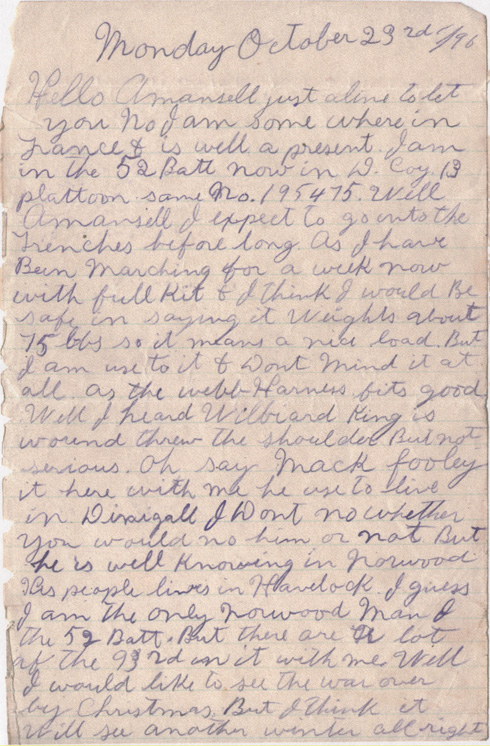 Monday October 23rd /96
Hello Amansell just aline to let
you No I am some where in
France & is well a present. I am
in the 52 Batt now in D. Coy. 13
plattoon same No. 195475. Well
Amansell I expect to go into the
Trenches before long. As I have
Been Marching for a week now
with full Kit & I think I would Be
safe in saying it Weights about
75 lbs so it means a nice load. But
I am use to it & Dont Mind it at
all. as the webb Harness fits good
Well I heard Wilbiard King is
wound threw the shoulder But not
serious. Oh say Mack fooley
it here with me he use to live
in I Dont no whether
You would no him or not But
he is well Knowing in Norwood
His people lives in Havelock. I guess
I am the only Norwood Man I
the 52 Batt. But there are a lot
of the 93rd in it with me. Well
I would like to see the war over
by Christmas. But I think it
Will see another winter all right